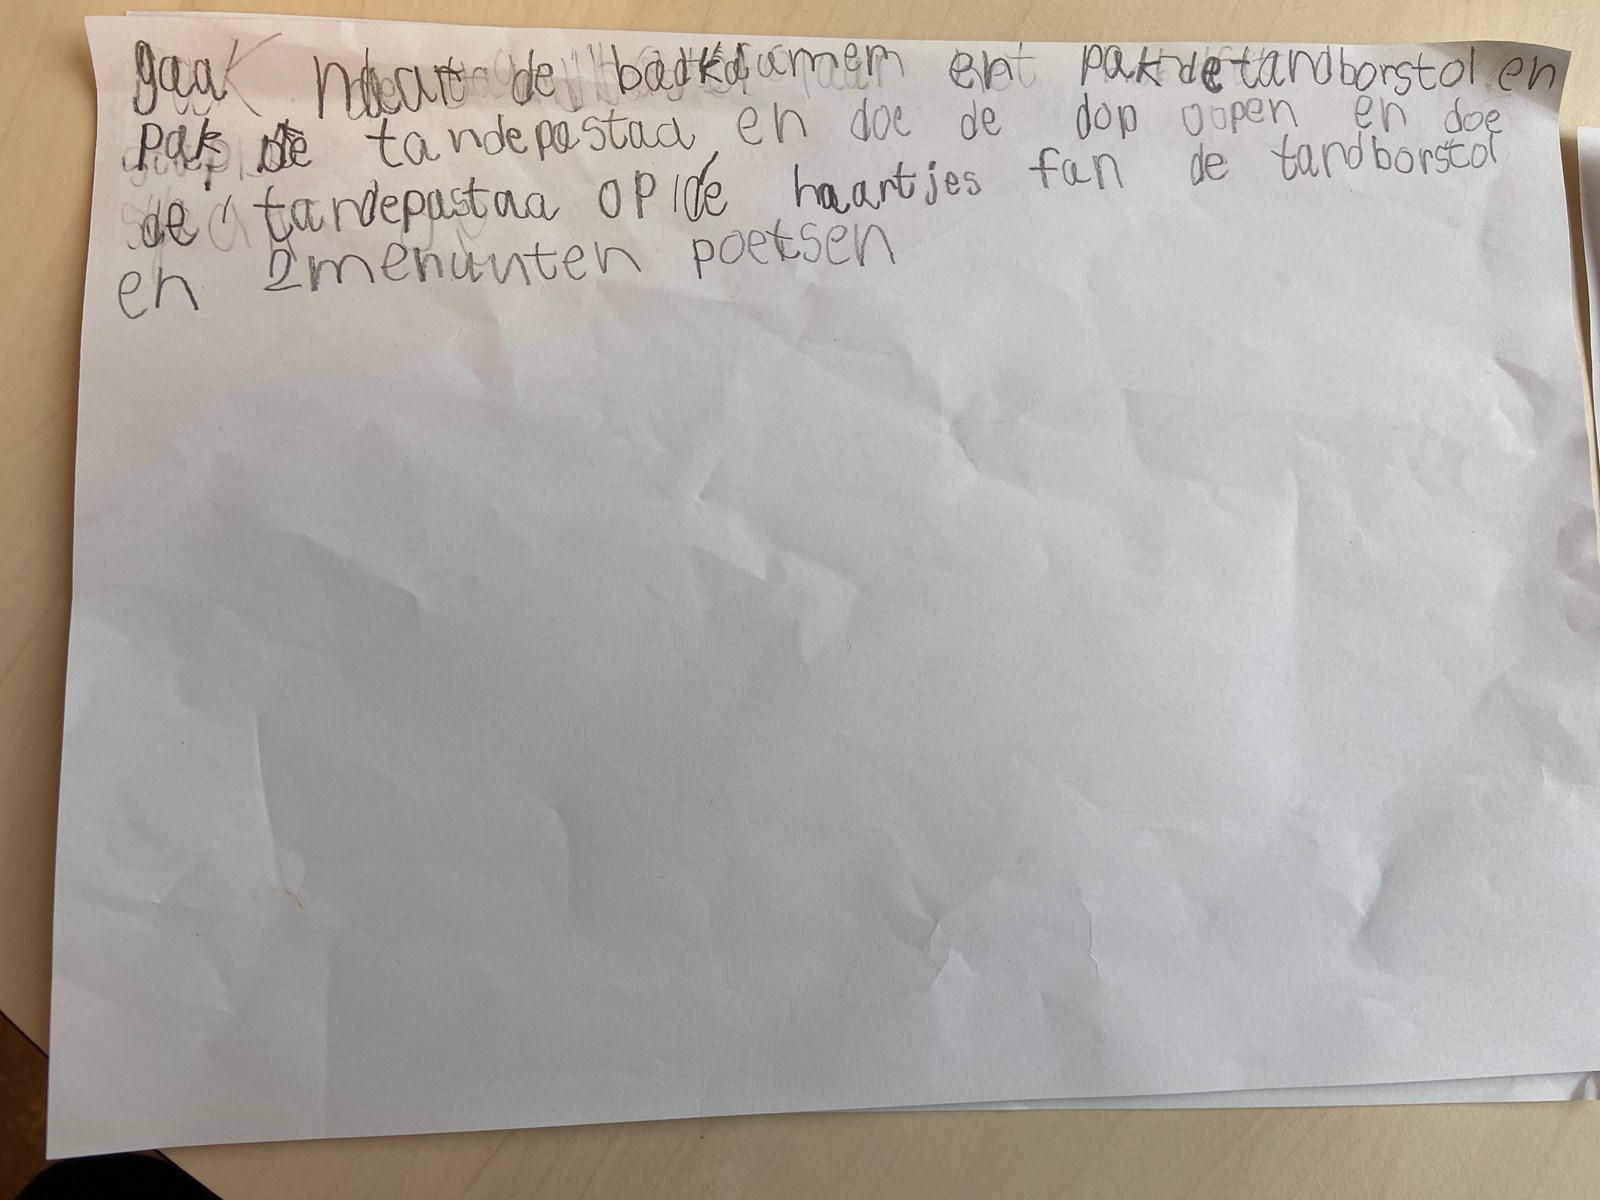 gaa naar de badkamer en pak de tandborstol en
pak de tandepastaa en doe de dop oopen en doe
de tandepastaa op de haartjes fan de tandborstol
en 2 menunten poetsen